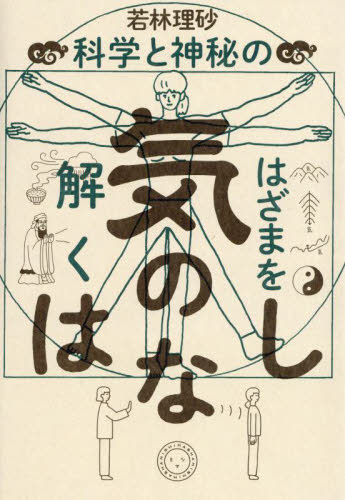 若林理砂
科学と神秘の
はざまを
解く
気のはなし
ミシマ
MISHIMASHA